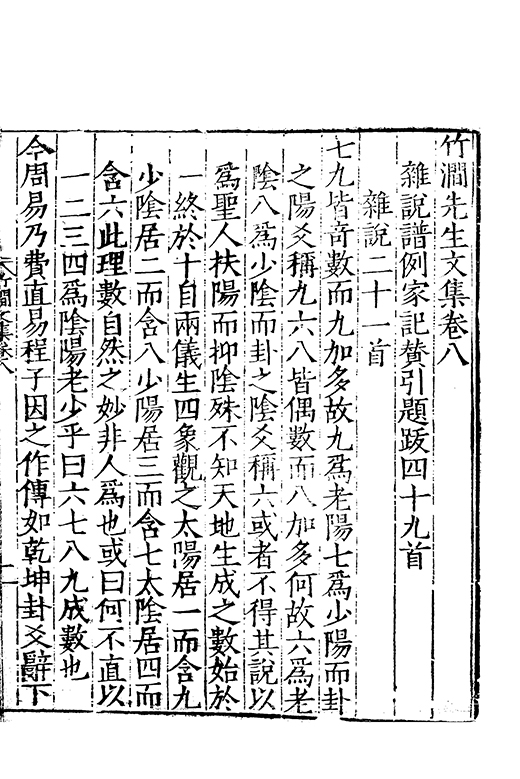 竹澗先生文集卷八
雜說譜例家記賛引題跋四十九首
雜說二十一首
七九皆奇數而九加多故九爲老陽七爲少陽而卦
之陽爻稱九六八皆偶數而八加多何故六爲老
陰八爲少陰而卦之陰爻稱六或者不得其說以
爲聖人扶陽而抑陰殊不知天地生成之數始於
一終於十自兩儀生四象觀之太陽居一而含九
少陰居二而含八少陽居三而含七太陰居四而
含六此理數自然之妙非人爲也或曰何不直以
一二三四爲陰陽老少乎曰六七八九成數也
今周易乃費直易程子因之作傳如乾坤卦爻辭下
竹澗文集卷八